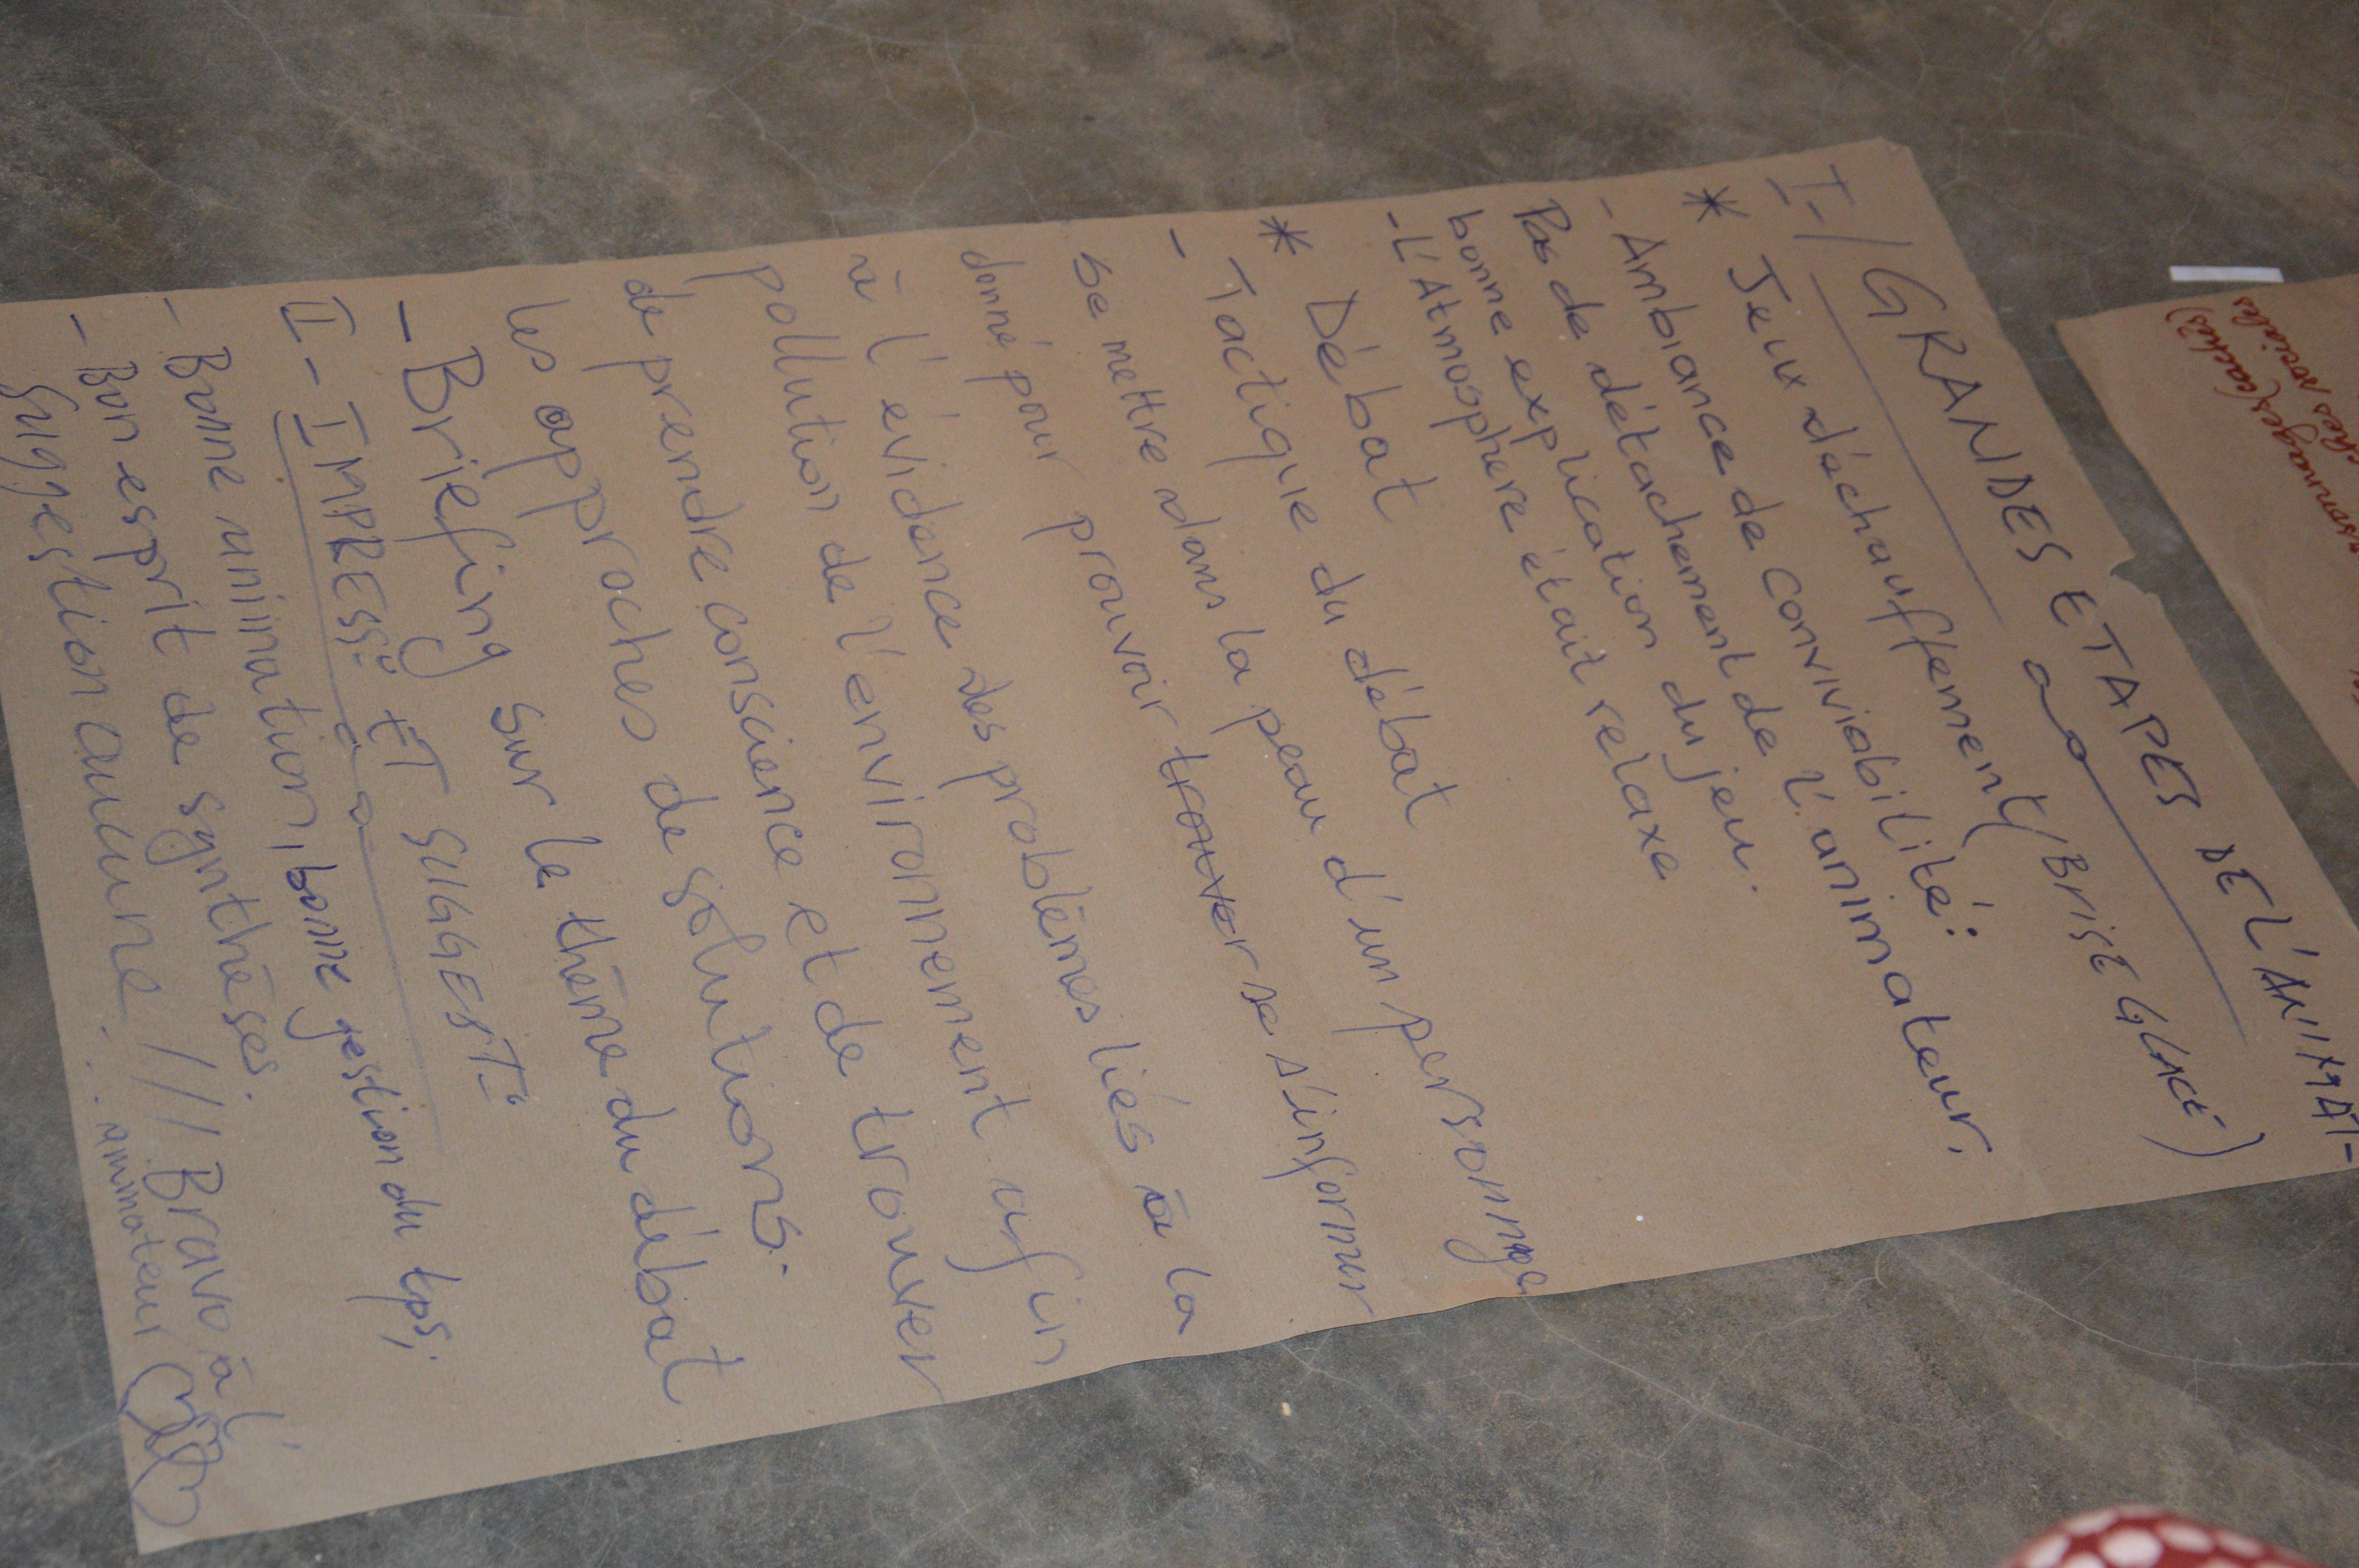 I-/ GRANDES ETAPES DE L'ANIMAT-
* Jeux d'échauffement (BRISE GLACE)
- Ambiance de convivialbilité:
Pas de détachement de l'animateur.
bonne explication du jeu.
- L'Atmosphère était relaxe
* Débat
- Tactique du débat
se mettre dans la peau d'un personnage
donné pour prouvoir trouver se s'informer
à l'évidence des problèmes liés à la
pollution de l'environnement afin
de prendre conscience et de trouver
les approches de solutions.
- Briefing sur le thème du débat
II - IMPRESS° ET SUGGEST°
- Bonne animation, bonne gestion du tps;
- Bon esprit de synthèses.
Suggestion aucune /// Bravo à l'
animateur
(cachés)
sociales